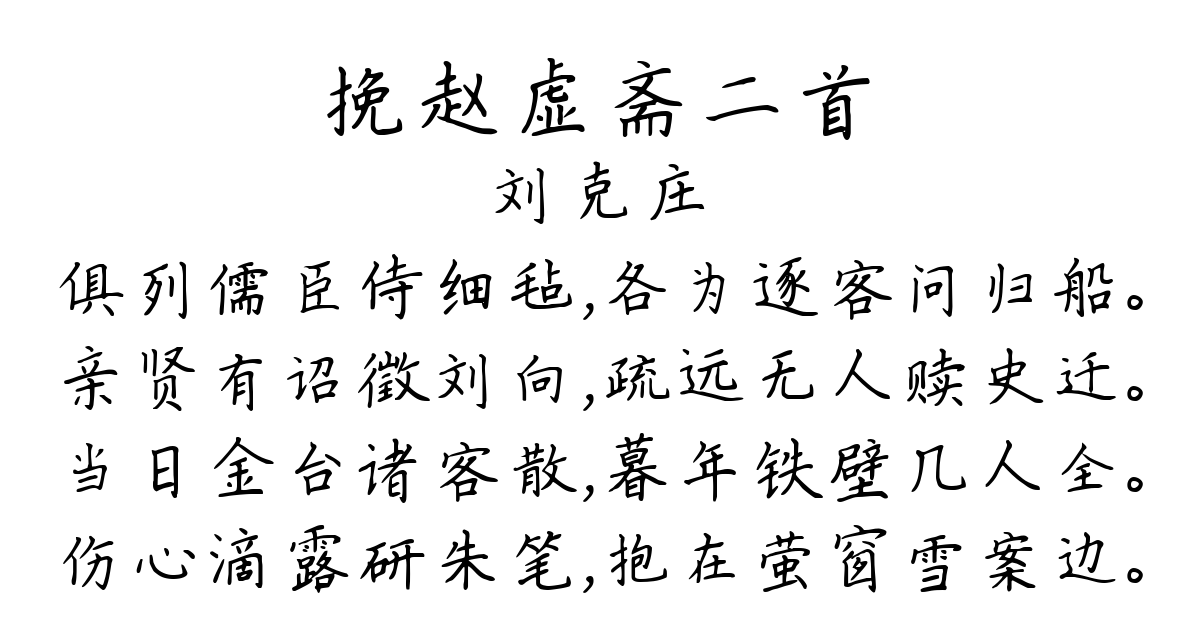 挽赵虚斋二首
刘克庄
俱列儒臣侍细毡,各为逐客问归船。
亲贤有诏徵刘向,疏远无人赎史迁。
当日金台诸客散,暮年铁壁几人全。
伤心滴露研朱笔,抱在萤窗雪案边。